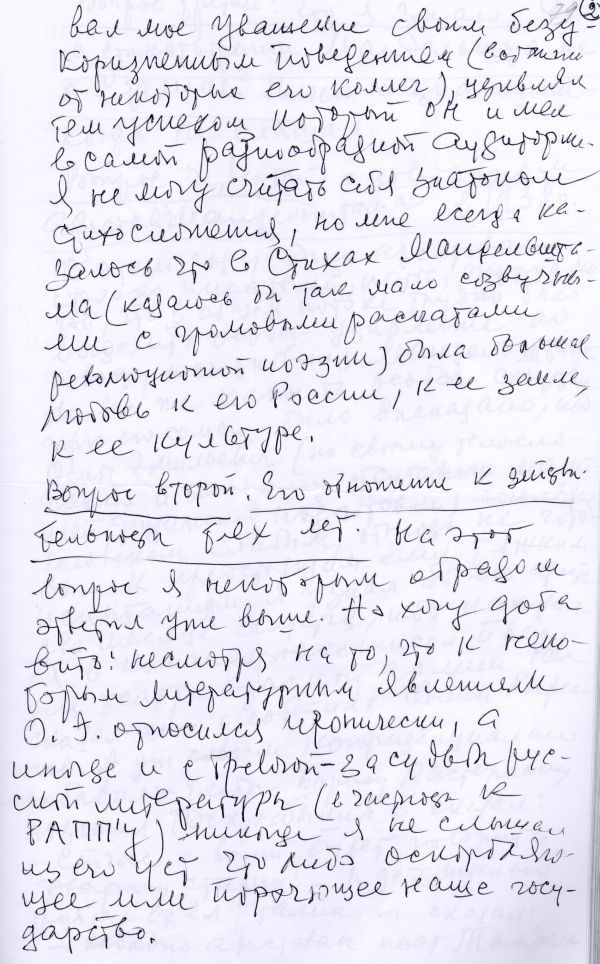 79 2
вал мое уважение своим безу-
коризненным поведением (в отличии
от некоторых его коллег), удивлял
тем успехом который он имел
в самой разнообразной аудитории.
Я не могу считать себя знатоком
стихосложения, но мне всегда ка-
залось что в стихах Мандельшта-
ма (казалось бы так мало созвучны-
ми с громовыми раскатами
революционной поэзии) была большая
любовь к его России, к ее земле,
к ее культуре.
Вопрос второй. Его отношение к действи-
тельности тех лет. На этот
вопрос я некоторым образом
ответил уже выше. Но хочу доба
вить: несмотря на то, что к неко-
торым литературным явлениям
О. Э. относился иронически, а
иногда и с тревогой за судьбы рус-
ской литературы (в частности к
РАПП'у) никогда я не слышал
из его уст что либо оскорбляю-
щее или порочующее наше госу-
дарство.